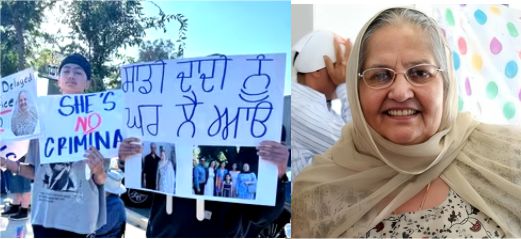 Delayed
SHE'S
NO
CRIMINA
ਸਾਡੀ ਦਾਦੀ ਨੂੰ
ਘਰ ਲੈ ਆਓ